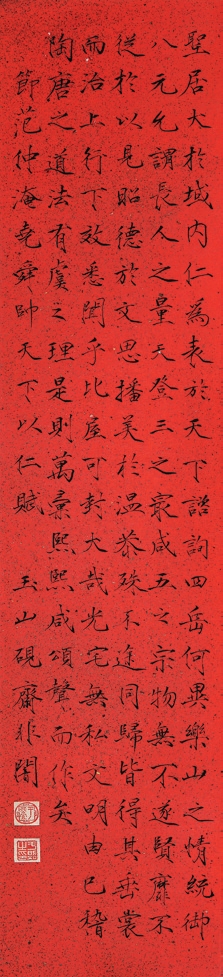 聖居大於域內仁為表於天下諮詢四岳何異樂山之情統御
八元允謂長人之量天登三之最咸五之宗物無不遂賢靡不
從於以見昭德於文思播美於溫恭殊不途同歸皆得其垂裳
而治上行下效悉聞乎比屋可封大哉光宅無私文明由已稽
陶唐之道法有虞之理是則萬彙熙熙咸頌聲而作矣
節范仲淹堯舜帥天下以仁賦 玉山硯齋非闇